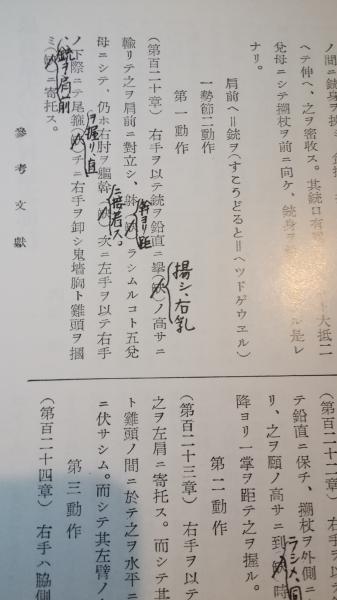 ノ間ニ銃身ヲ挾
ヘテ伸ヘ、之ヲ密收ス。其銃口有
ト大抵二
兌母ニシテ搠杖ヲ前ニ向ケ、銃身ヲ
ル是レ
ナリ。
肩前ヘ＝銃ヲ(すこうどると＝ヘツドゲウエル)
一勢節二動作
第一動作
(第百二十章) 右手ヲ以テ銃ヲ鉛直ニ擧(缺)ノ高サニ
揚シ、右乳
輸リテ之ヲ肩前ニ對立シ、躰(缺)ラシムルコト五兌
幹ヨリ距
母ニシテ、仍ホ右肘ヲ軀幹(缺)次ニ左手ヲ以テ右手
ニ接着ス。
ノ下際ニテ尾箍(缺)チニ右手ヲ卸シ鬼墻胸ト雞頭ヲ摑
ヲ握リ直
ミ(缺)ニ寄托ス。
銃ヲ肩前
參考文獻
(第百二十
テ鉛直ニ保チ、搠杖ヲ外側ニ
リ、之ヲ頤ノ高サニ到(缺)時
ラシメ、同
降ヨリ一掌ヲ距テ之ヲ握ル。
第二動作
(第百二十三章) 右手ヲ以テ
之ヲ左肩ニ寄托ス。而シテ其
ト雞頭ノ間ニ於テ之ヲ水平ニ
ニ伏サシム。而シテ其左臂ノ
第三動作
(第百二十四章) 右手ハ脇側